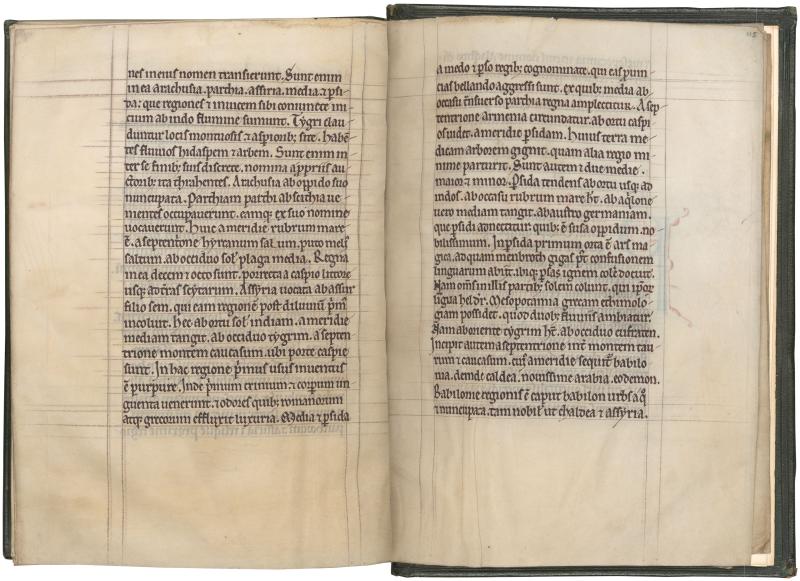 nes in eius nomen transierunt. Sunt enim
in ea arachusia. parthia. assiria. media. ⁊ psi
da: que regiones inuicem sibi coniuncte ini
cium ab indo flumine sumunt. Tygri clau
duntur locis montuosis ⁊ aspiorib; site. habe̅
tes fluuios hidaspem ⁊ arbem. Sunt enim in
ter se finib; suis discrete. nomina a ppriis au
ctorib; ita trahentes. Arachusia ab oppido suo
nuncupata. Parthiam parthi ab scithia ue
nientes occupauerunt. eamq; ex suo nomine
uocauerunt. Huic a meridie rubrum mare
e̅. a septentrione hyrcanum salum. 
saltum. ab occiduo sol' plaga media. Regna
in ea decem ⁊ octo sunt. porrecta a caspio littore
usq; ad t̅ras scytarum. Assyria uocata ab assur
filio sem. qui eam regione̅ post diluuiu̅ p̅m'
incoluit. Hec ab ortu sol' indiam. a meridie
mediam tangit. ab occiduo tygrim. a septen
trione montem caucasum. ubi porte caspie
sunt. In hac regione p̅imus usus inuentus
e̅ purpure. Inde p̅mum crinium ⁊ corpum un
guenta uenerunt. ⁊ odores quib; romanorum
atq; grecorum effluxit luxuria. Media ⁊ psida
a medo ⁊ pso regib; cognominate. qui eas prouin
cias bellando aggressi sunt. ex quib; media ab
occasu t̅nsuerso parthia regna amplectitur. A sep
tentrione armenia circundatur. ab ortu caspi
os uidet. a meridie psidam. Huius terra me
dicam arborem gignit. quam alia regio mi
nime parturit. Sunt autem ⁊ due medie.
maior ⁊ minor. Psida tendens ab ortu usq; ad
indos. ab occasu rubrum mare h̅t. ab aq̅lone
uero mediam tangit. ab austro germaniam.
que psidi adnectitur. quib; e̅ susa oppidum no
bilissimum. In psida primum orta e̅ ars ma
gica. ad quam menbroth gigas p̅t confusionem
linguarum abiit. ibiq; psas igne̅ cole̅ docuit.
Nam om̅s in illis partib; solem colunt. qui ip̅or
lingua hel dr̅. Mesopotamia grecam ethimolo
giam possidet. quod duob; fluuiis ambiatur.
Nam ab oriente tygrim h̅t. ab occiduo eufraten.
Incipit autem a septentrione int̅ montem tau
rum ⁊ caucasum. cui' a meridie sequit̅ babilo
nia. deinde caldea. nouissime arabia. eodemon.
Babilonie regionis e̅ caput babilon urbs a q̅
⁊ nuncupata. tam nobil' ut chaldea ⁊ assyria.